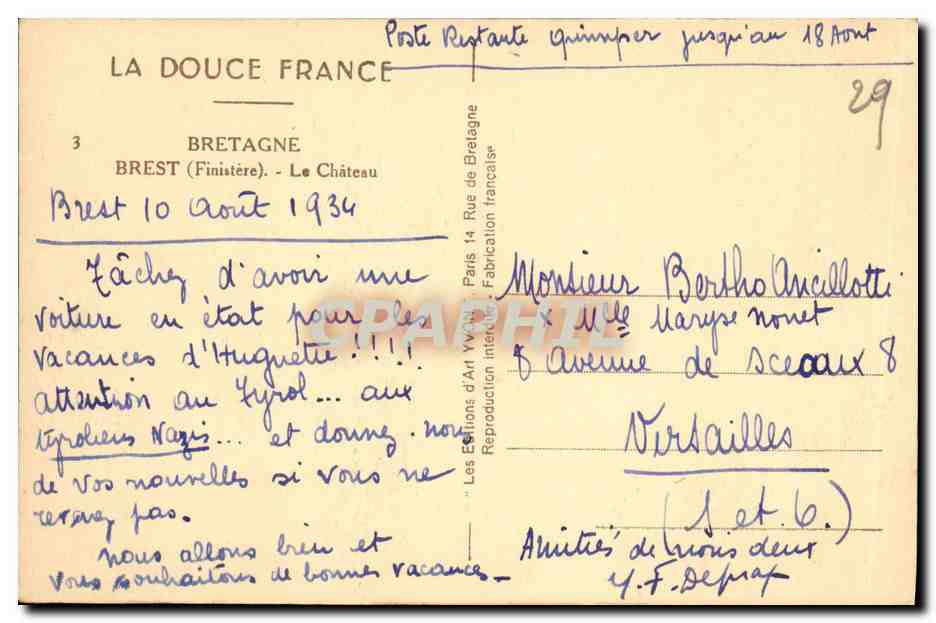 Poste Restante Quimper jusqu'au 18 Aout
LA DOUCE FRANCE
29
3
BRETAGNE
BREST (Finistère). - Le Château
Brest 10 Août 1934
Tâchez d'avoir une
voiture en état pour les
vacances d'Huguette !!!!
attention au Tyrol... aux
tyroliens Nazis... et donnez-nous
de vos nouvelles si vous ne
revenez pas.
nous allons bien et
vous souhaitons de bonnes vacances_
"Les Editions d'Art YVON", Paris 14 Rue de Bretagne
Reproduction interdite. Fabrication française
CPAPHIL
Monsieur Bertho Ancillotti
x Mlle Maryse Nonet
8 Avenue de Sceaux 8
Versailles
(S et. O.)
Amitiés de nous deux